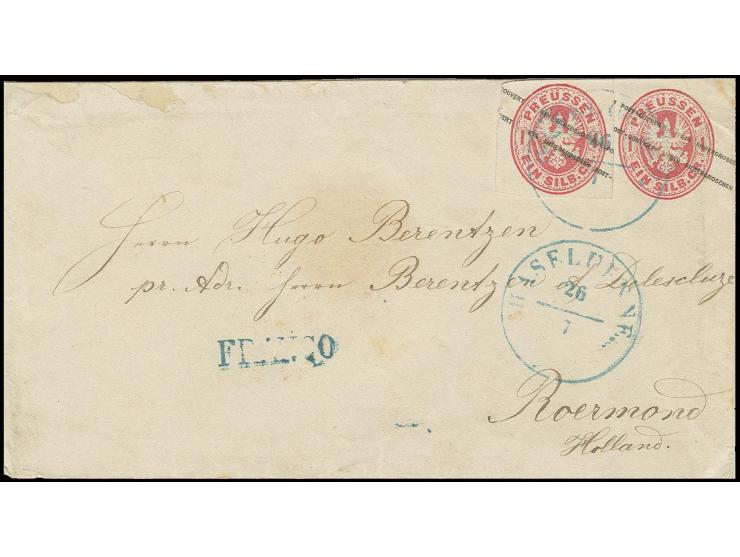 PREUSSEN
1 EIN SILB.GR. 1
PREUSSEN
1 EIN SILB.GR. 1
26
7
Herrn Hugo Berentzen
pr. Adr. Herrn Berentzen &
HASELUENNE
26
7
FRANCO
Roermond
Holland.